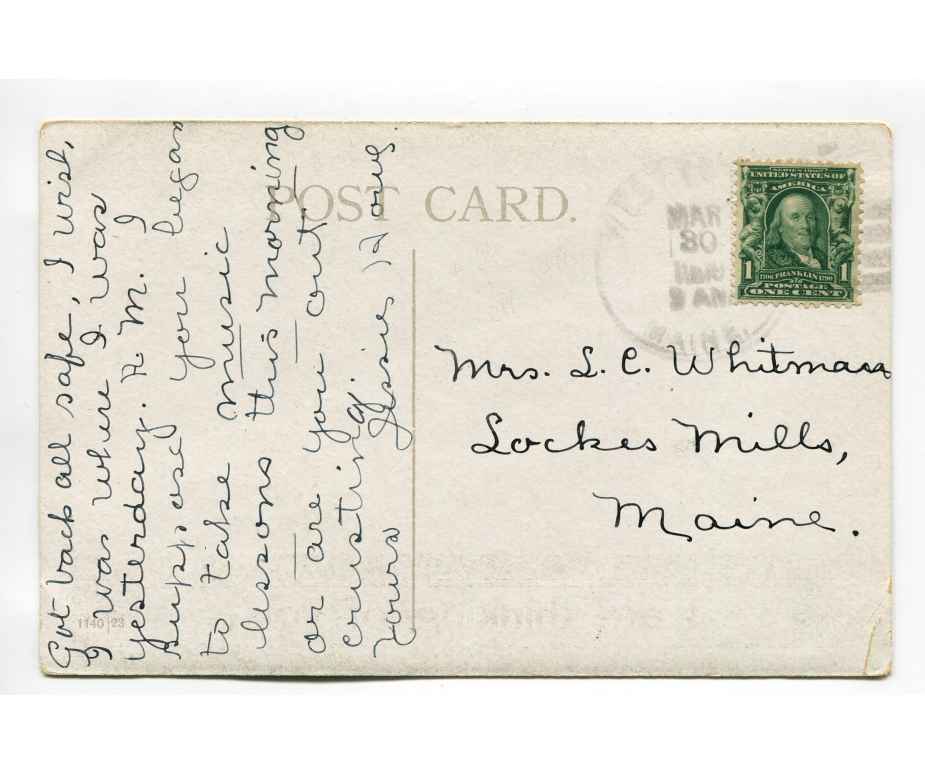 POST CARD.
Got back all safe, I wish,
I was where I was
yesterday. A. M. I
suppose you began
to take music
lessons this morning
or are you out
crusting
Yours Jessie
1140 23
SERIES 1902
UNITED STATES OF
AMERICA
1 1706 FRANKLIN 1790 1
POSTAGE
ONE CENT
Mrs. L. C. Whitman
Lockes Mills,
Maine.